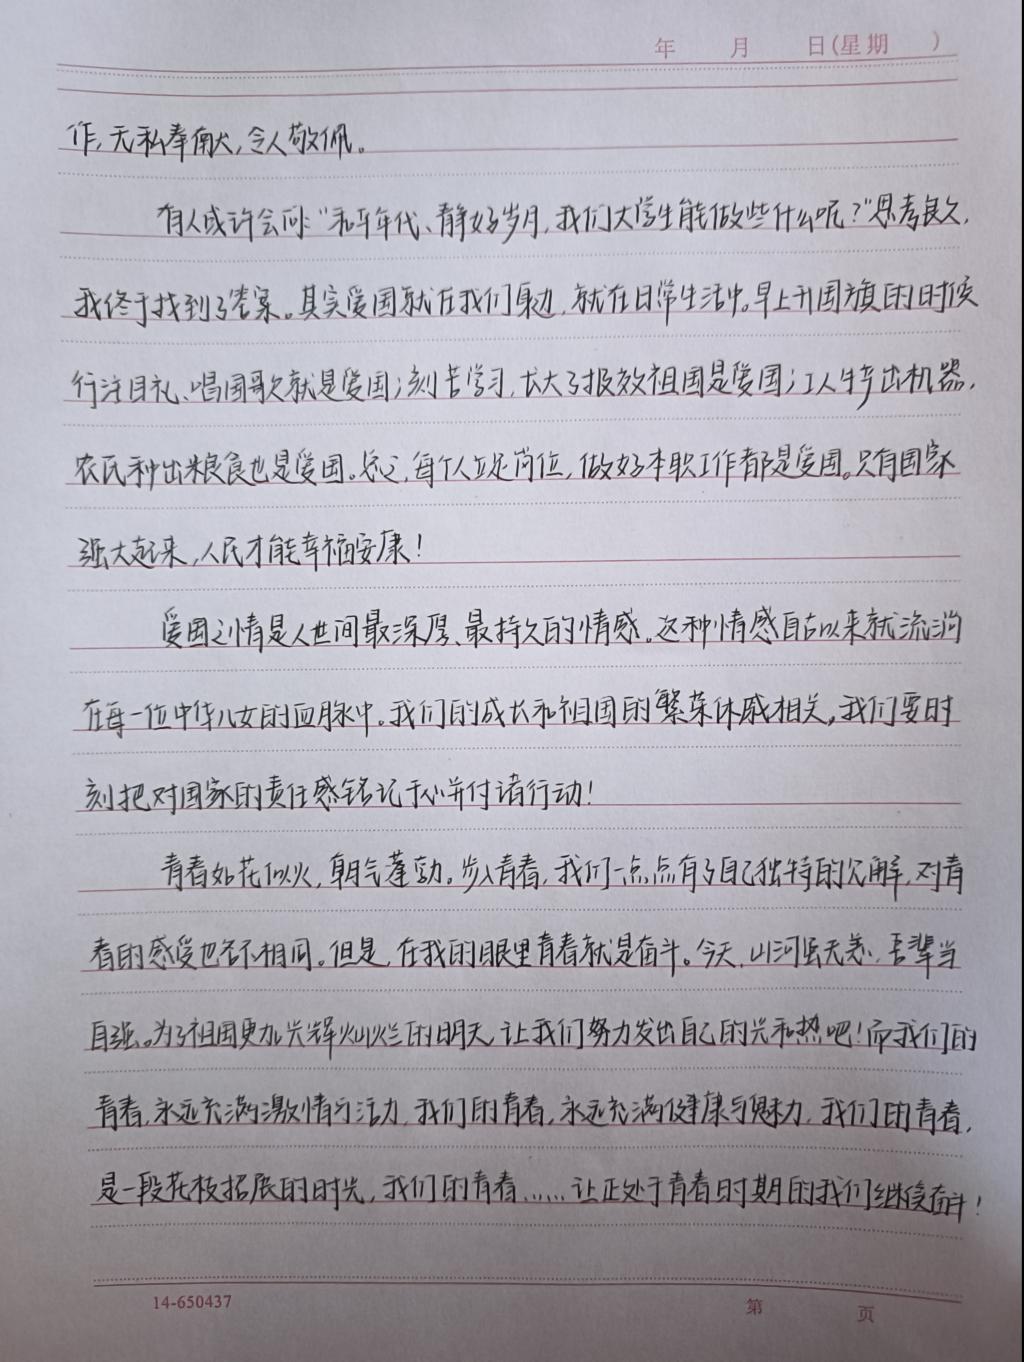 年 月 日(星期 )
作,无私奉献,令人敬佩。
有人或许会问:“和平年代、静好岁月,我们大学生能做些什么呢?”思考良久,
我终于找到了答案。其实爱国就在我们身边,就在日常生活中。早上升国旗的时候
行注目礼、唱国歌就是爱国;刻苦学习,长大了报效祖国是爱国;工人生产出机器,
农民种出粮食也是爱国。总之,每个人立足岗位,做好本职工作都是爱国。只有国家
强大起来,人民才能幸福安康!
爱国之情是人世间最深厚、最持久的情感。这种情感自古以来就流淌
在每一位中华儿女的血脉中。我们的成长和祖国的繁荣休戚相关,我们要时
刻把对国家的责任感铭记于心并付诸行动!
青春如花似火,朝气蓬勃。步入青春,我们一点点有了自己独特的见解,对青
春的感受也各不相同。但是,在我的眼里青春就是奋斗。今天,山河无恙,吾辈当
自强。为了祖国更加光辉灿烂的明天,让我们努力发出自己的光和热吧!而我们的
青春,永远充满激情与活力,我们的青春,永远充满健康与魅力,我们的青春,
是一段花枝招展的时光,我们的青春……让正处于青春时期的我们继续奋斗!
14-650437 第 页